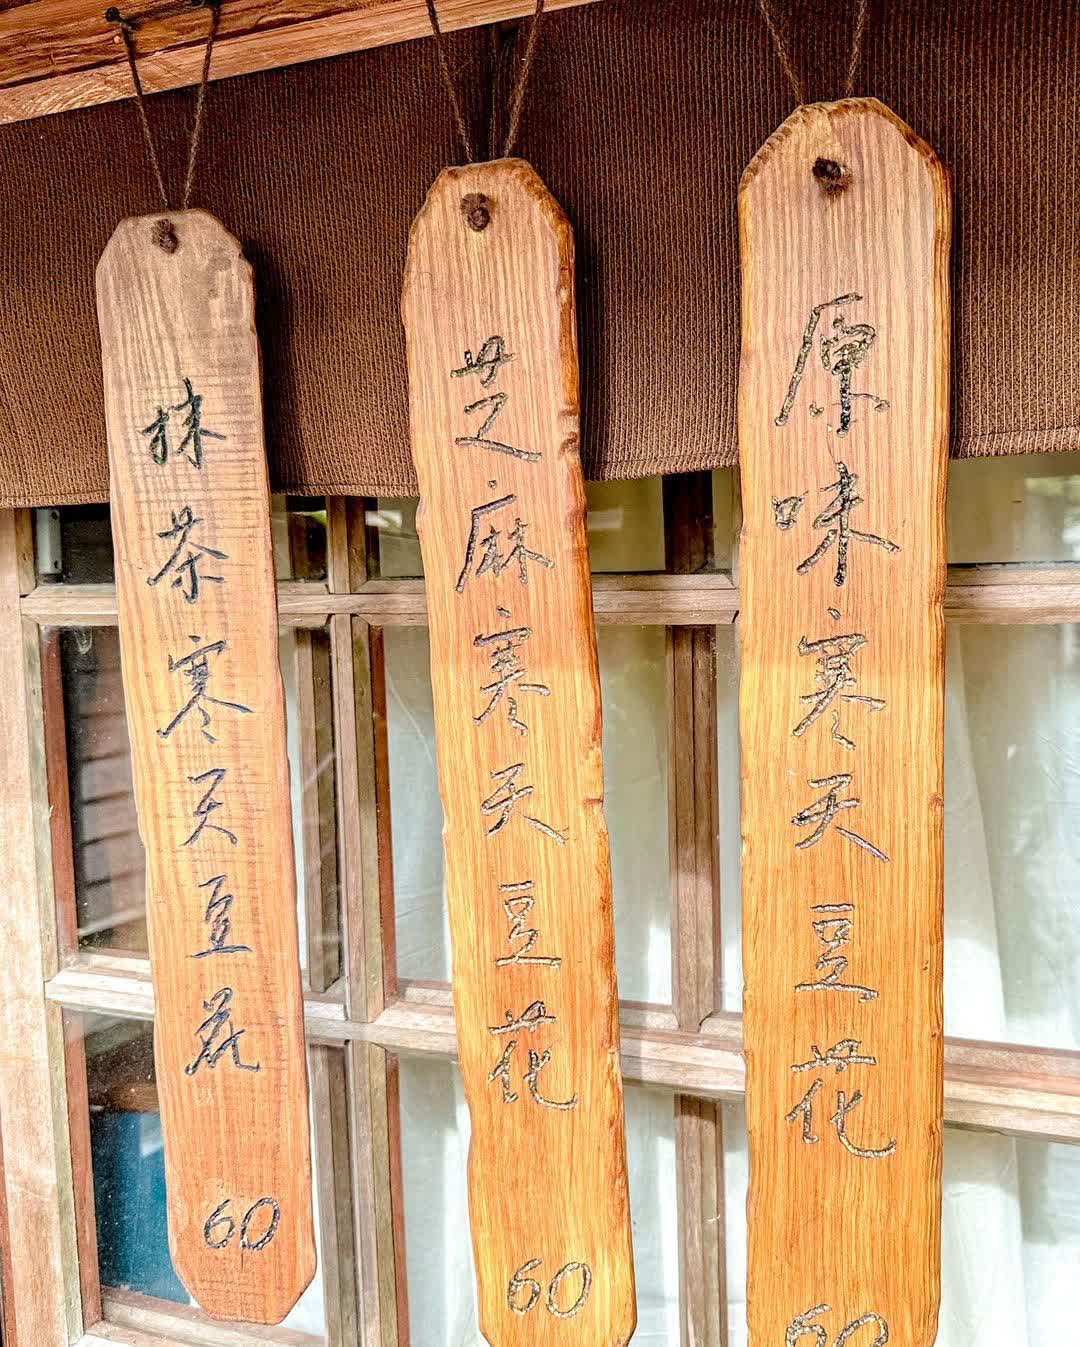 原味寒天豆花 60
芝麻寒天豆花 60
抹茶寒天豆花 60